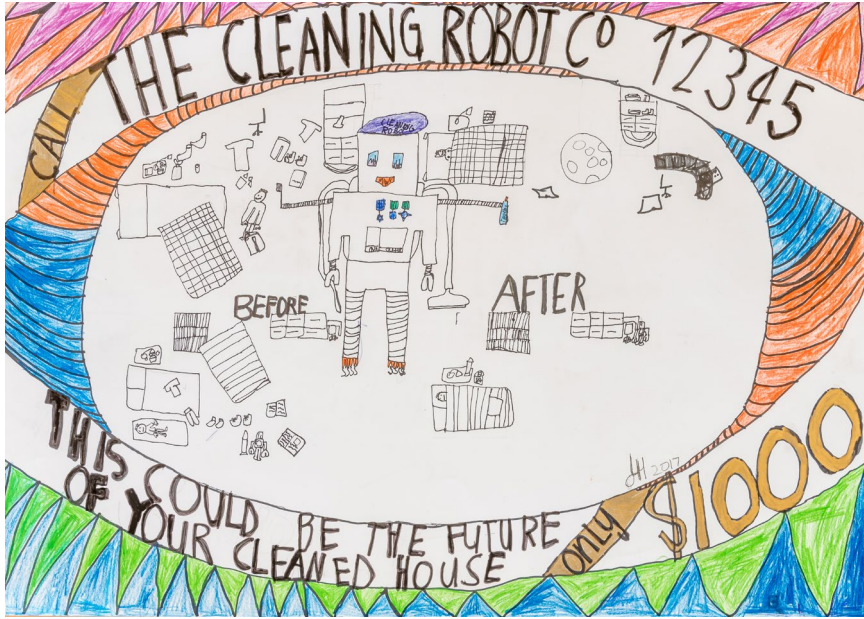 CALL THE CLEANING ROBOT CO 12345
CLEANING
ROBOT
BEFORE
AFTER
JH 2017
THIS COULD BE THE FUTURE
OF YOUR CLEANED HOUSE
only $1000